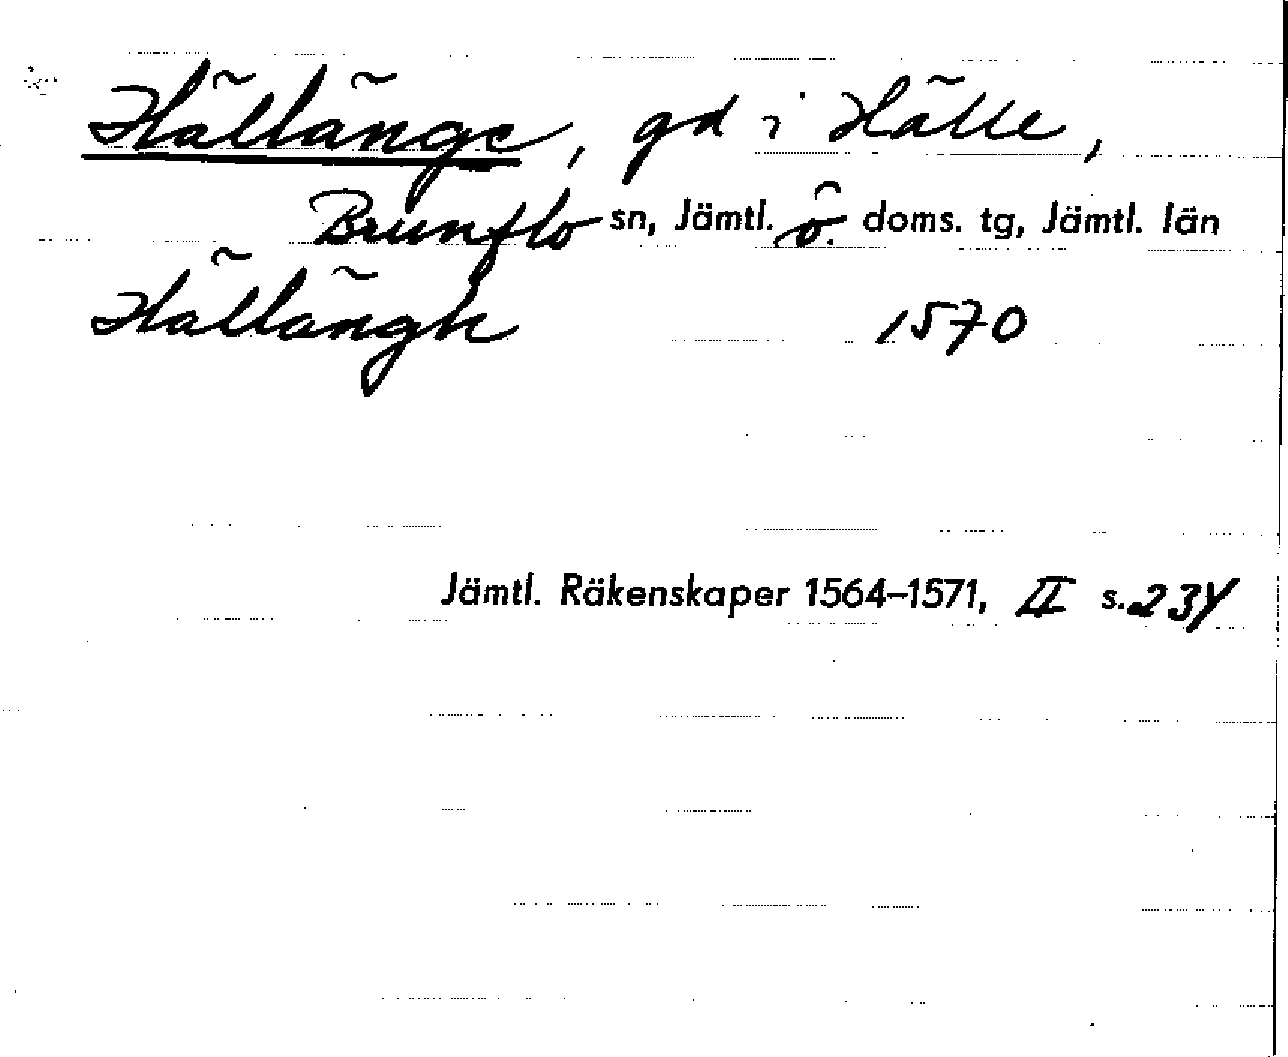 Hällänge, gd i Hälle,
Brunflo sn, Jämtl. ö. doms. tg, Jämtl. län
Hällängh 1570
Jämtl. Räkenskaper 1564–1571, II s. 234